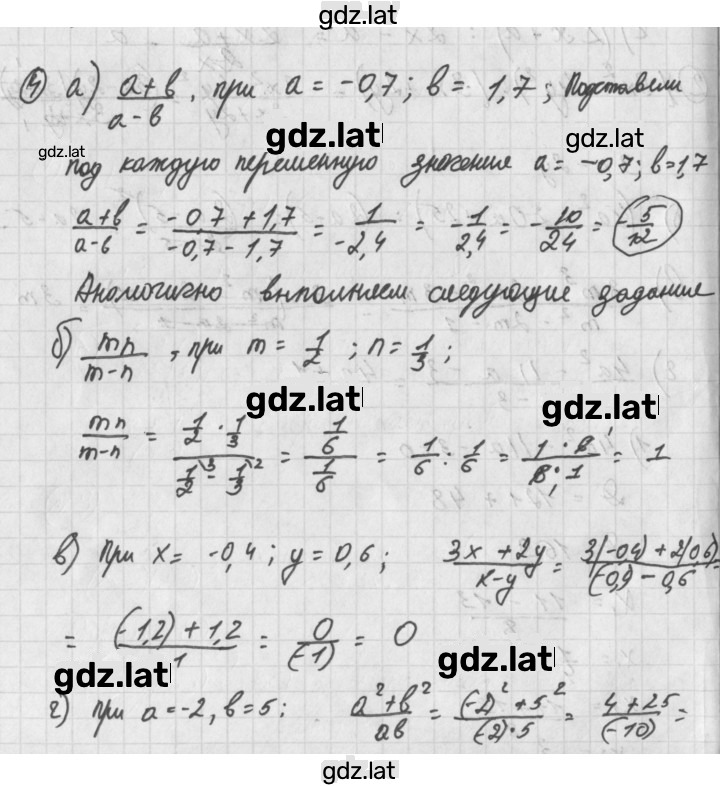 gdz.lat
4) а) (a+b)/(a-b), при a = -0,7; b = 1,7; Подставели
gdz.lat
gdz.lat
gdz.lat
под каждую переменную значение a = -0,7; b=1,7
(a+b)/(a-b) = (-0,7+1,7)/(-0,7-1,7) = 1/(-2,4) = -1/2,4 = -10/24 = -5/12
Аналогично выполняем следующие задание
б) mn/(m-n), при m = 1/2; n = 1/3;
gdz.lat
gdz.lat
mn/(m-n) = (1/2 · 1/3)/(1/2\3 - 1/3\2) = (1/6)/(1/6) = 1/6 : 1/6 = (1·6)/(6·1) = 1
в) При x = -0,4; y = 0,6; (3x+2y)/(x-y) = (3(-0,4)+2(0,6))/((-0,4)-0,6) =
= ((-1,2)+1,2)/1 = 0/(-1) = 0
gdz.lat
gdz.lat
г) при a=-2, b=5; (a²+b²)/(ab) = ((-2)²+5²)/((-2)·5) = (4+25)/(-10) =
gdz.lat